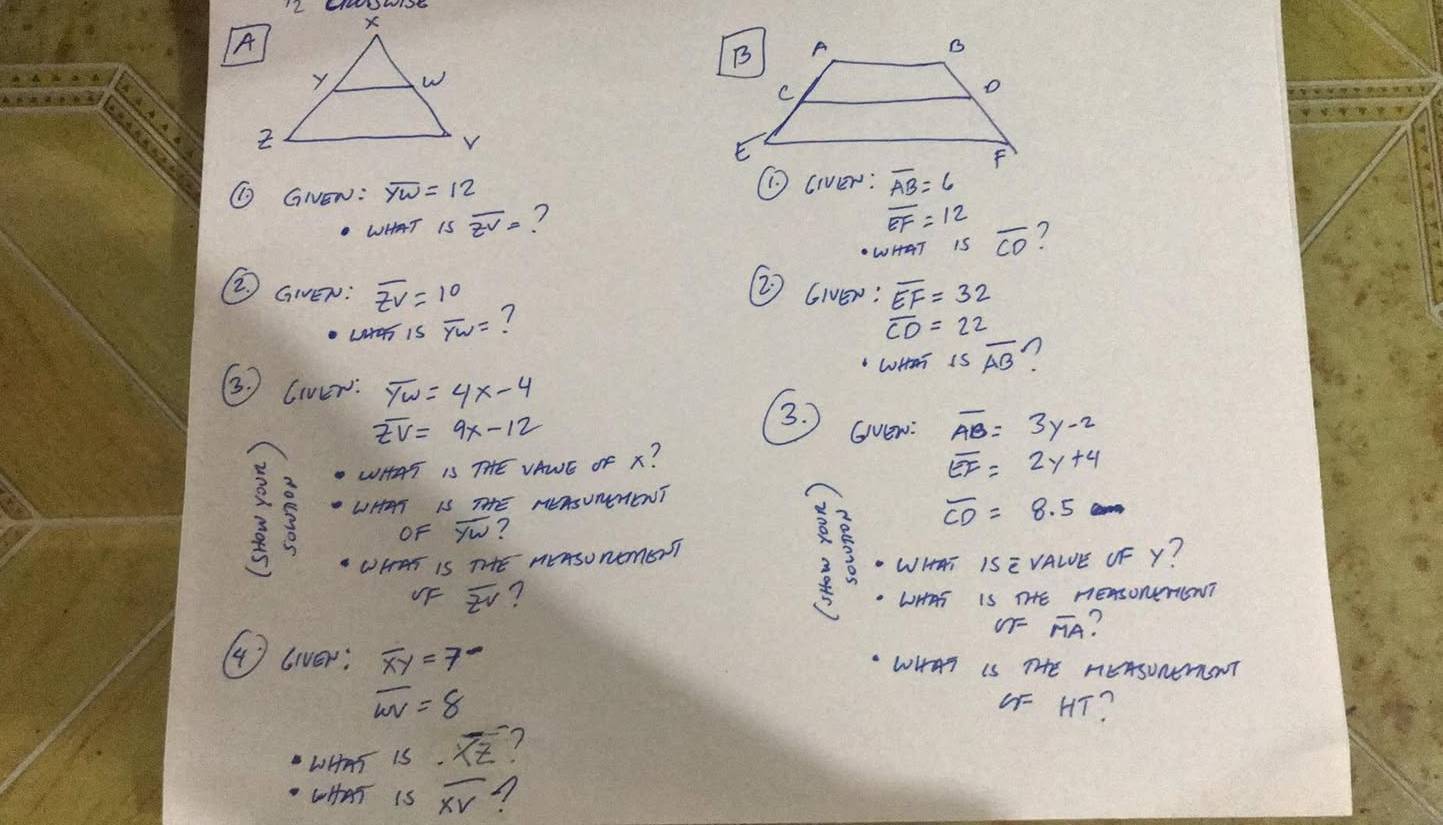 1/2 CROSSWISE
A
X
Y
W
Z
V
① GIVEN: YW = 12
• WHAT IS ZV = ?
②. GIVEN: ZV = 10
• WHAT IS YW = ?
③. GIVEN: YW = 4x-4
ZV = 9x-12
(SHOW YOUR
SOLUTION)
• WHAT IS THE VALUE OF X?
• WHAT IS THE MEASUREMENT
OF YW?
• WHAT IS THE MEASUREMENT
OF ZV?
④ GIVEN: XY = 7
WV = 8
• WHAT IS XZ?
• WHAT IS XV?
B
A
B
C
D
E
F
①. GIVEN: AB = 6
EF = 12
• WHAT IS CD?
②. GIVEN: EF = 32
CD = 22
• WHAT IS AB?
③. GIVEN: AB = 3y-2
EF = 2y+4
CD = 8.5
(SHOW YOUR
SOLUTION)
• WHAT IS VALUE OF Y?
• WHAT IS THE MEASUREMENT
OF MA?
• WHAT IS THE MEASUREMENT
OF HT?